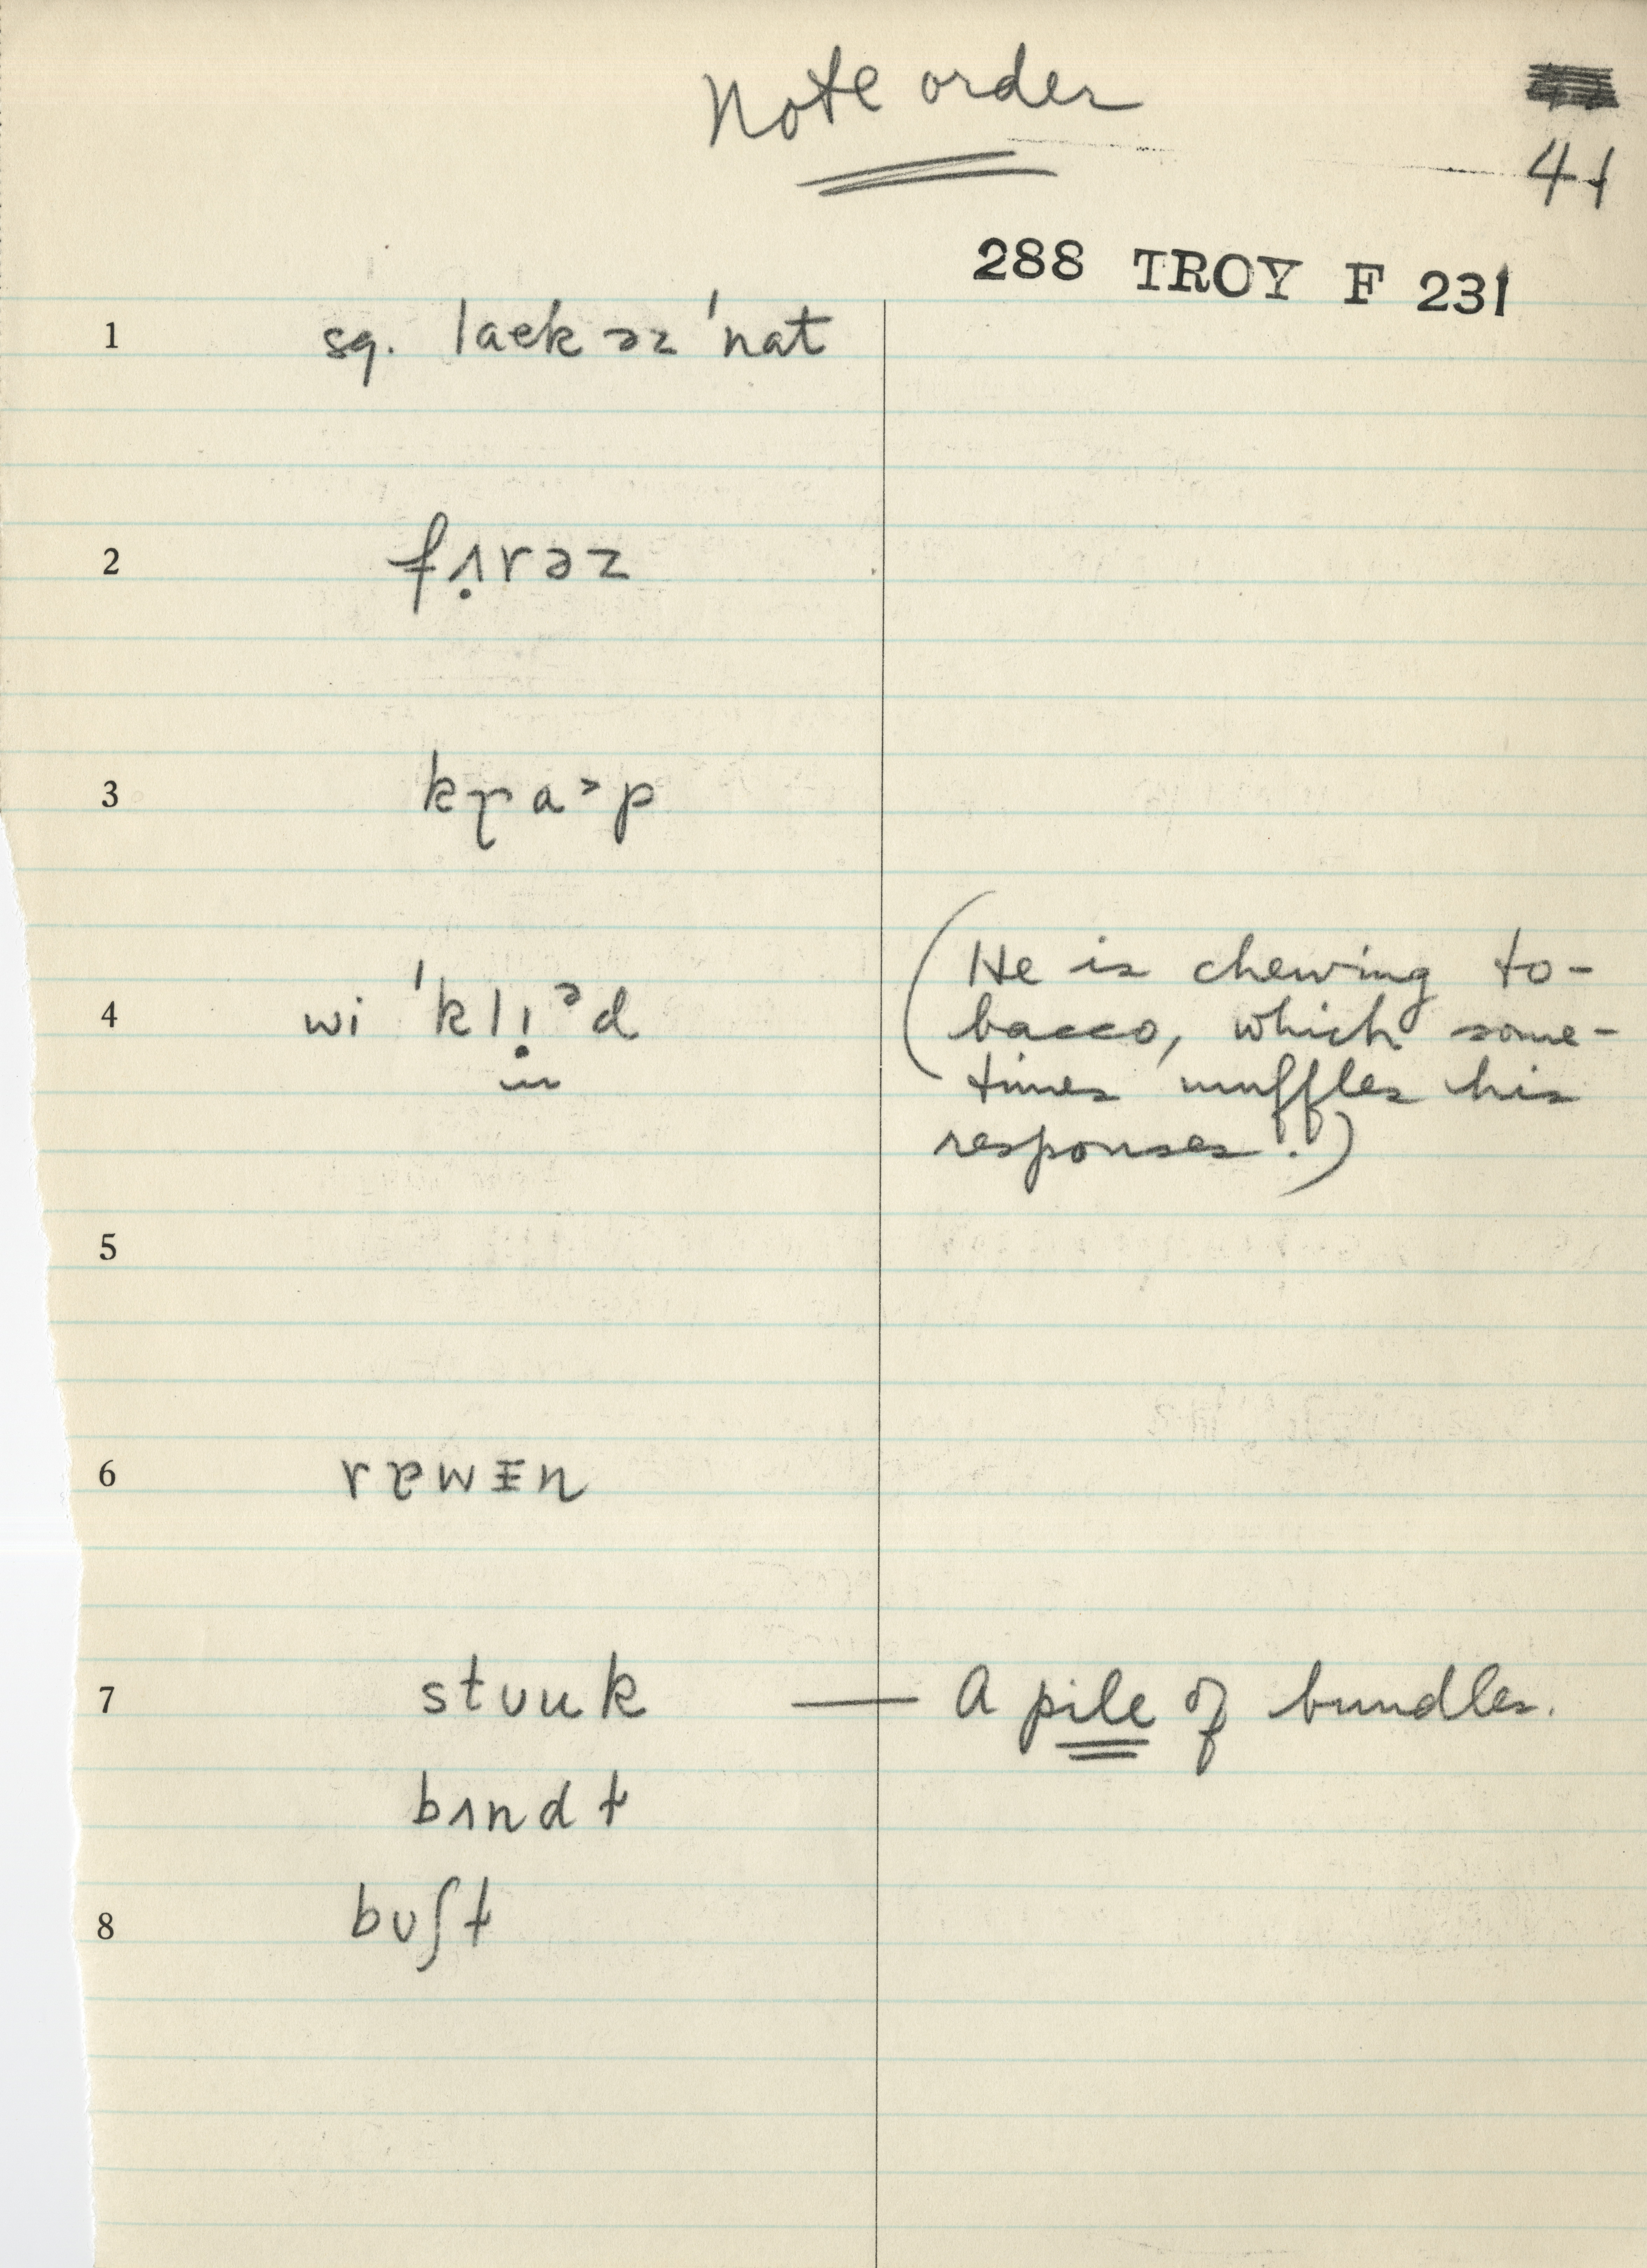 Note order
41
288 TROY F 231
1 sq. laek əz 'nat
2 fʌ̣rəz
3 kɽaᵊp
4 wi 'klị ᵊd (He is chewing to-
bacco, which some-
times muffles his
responses!.)
5
6 rɐwɪn
7 stʊuk — A pile of bundles.
bʌndɫ
8 bʊʃɫ